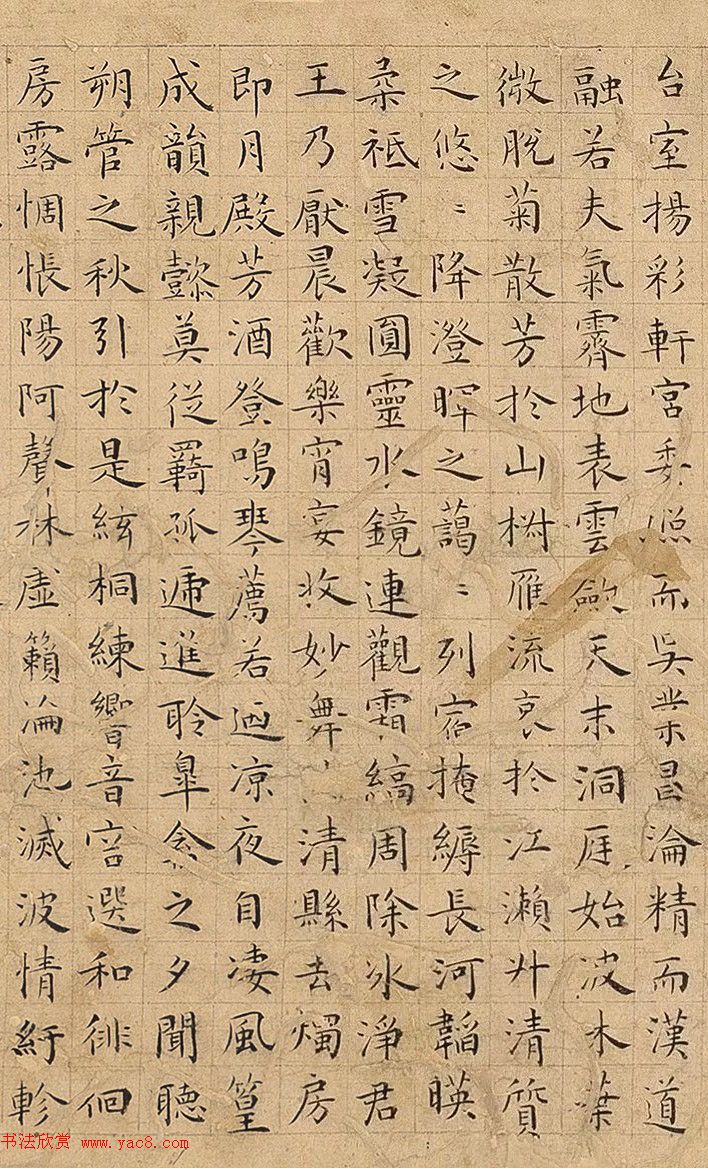 台室揚彩軒宮委照而吳業昌淪精而漢道
融若夫氣霽地表雲斂天末洞庭始波木葉
微脫菊散芳於山椒雁流哀於江瀨升清質
之悠〻降澄暉之藹〻列宿掩縟長河韜暎
柔祗雪凝圓靈水鏡連觀霜縞周除氷淨君
王乃厭晨歡樂宵宴收妙舞清縣去燭房
即月殿芳酒登鳴琴薦若迺凉夜自凄風篁
成韻親懿莫從羇孤遞進聆皐禽之夕聞聽
朔管之秋引於是絃桐練響音容選和徘徊
房露惆悵陽阿聲林虛籟淪池滅波情紆軫
书法欣赏 www.yac8.com